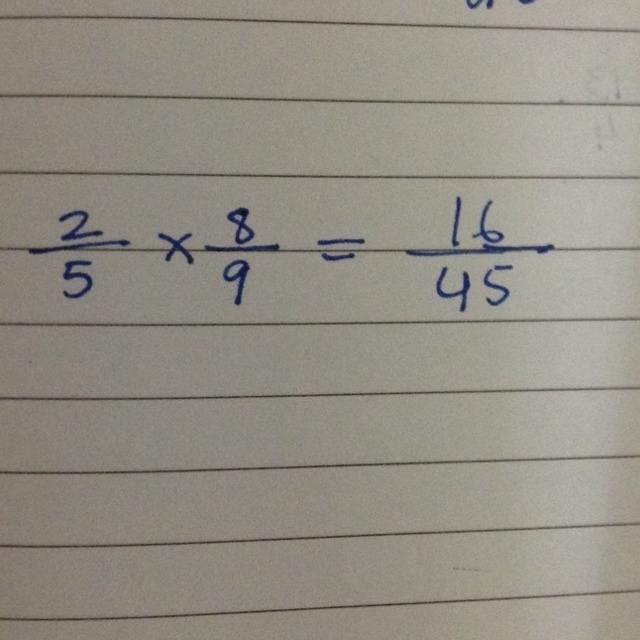 2/5 × 8/9 = 16/45